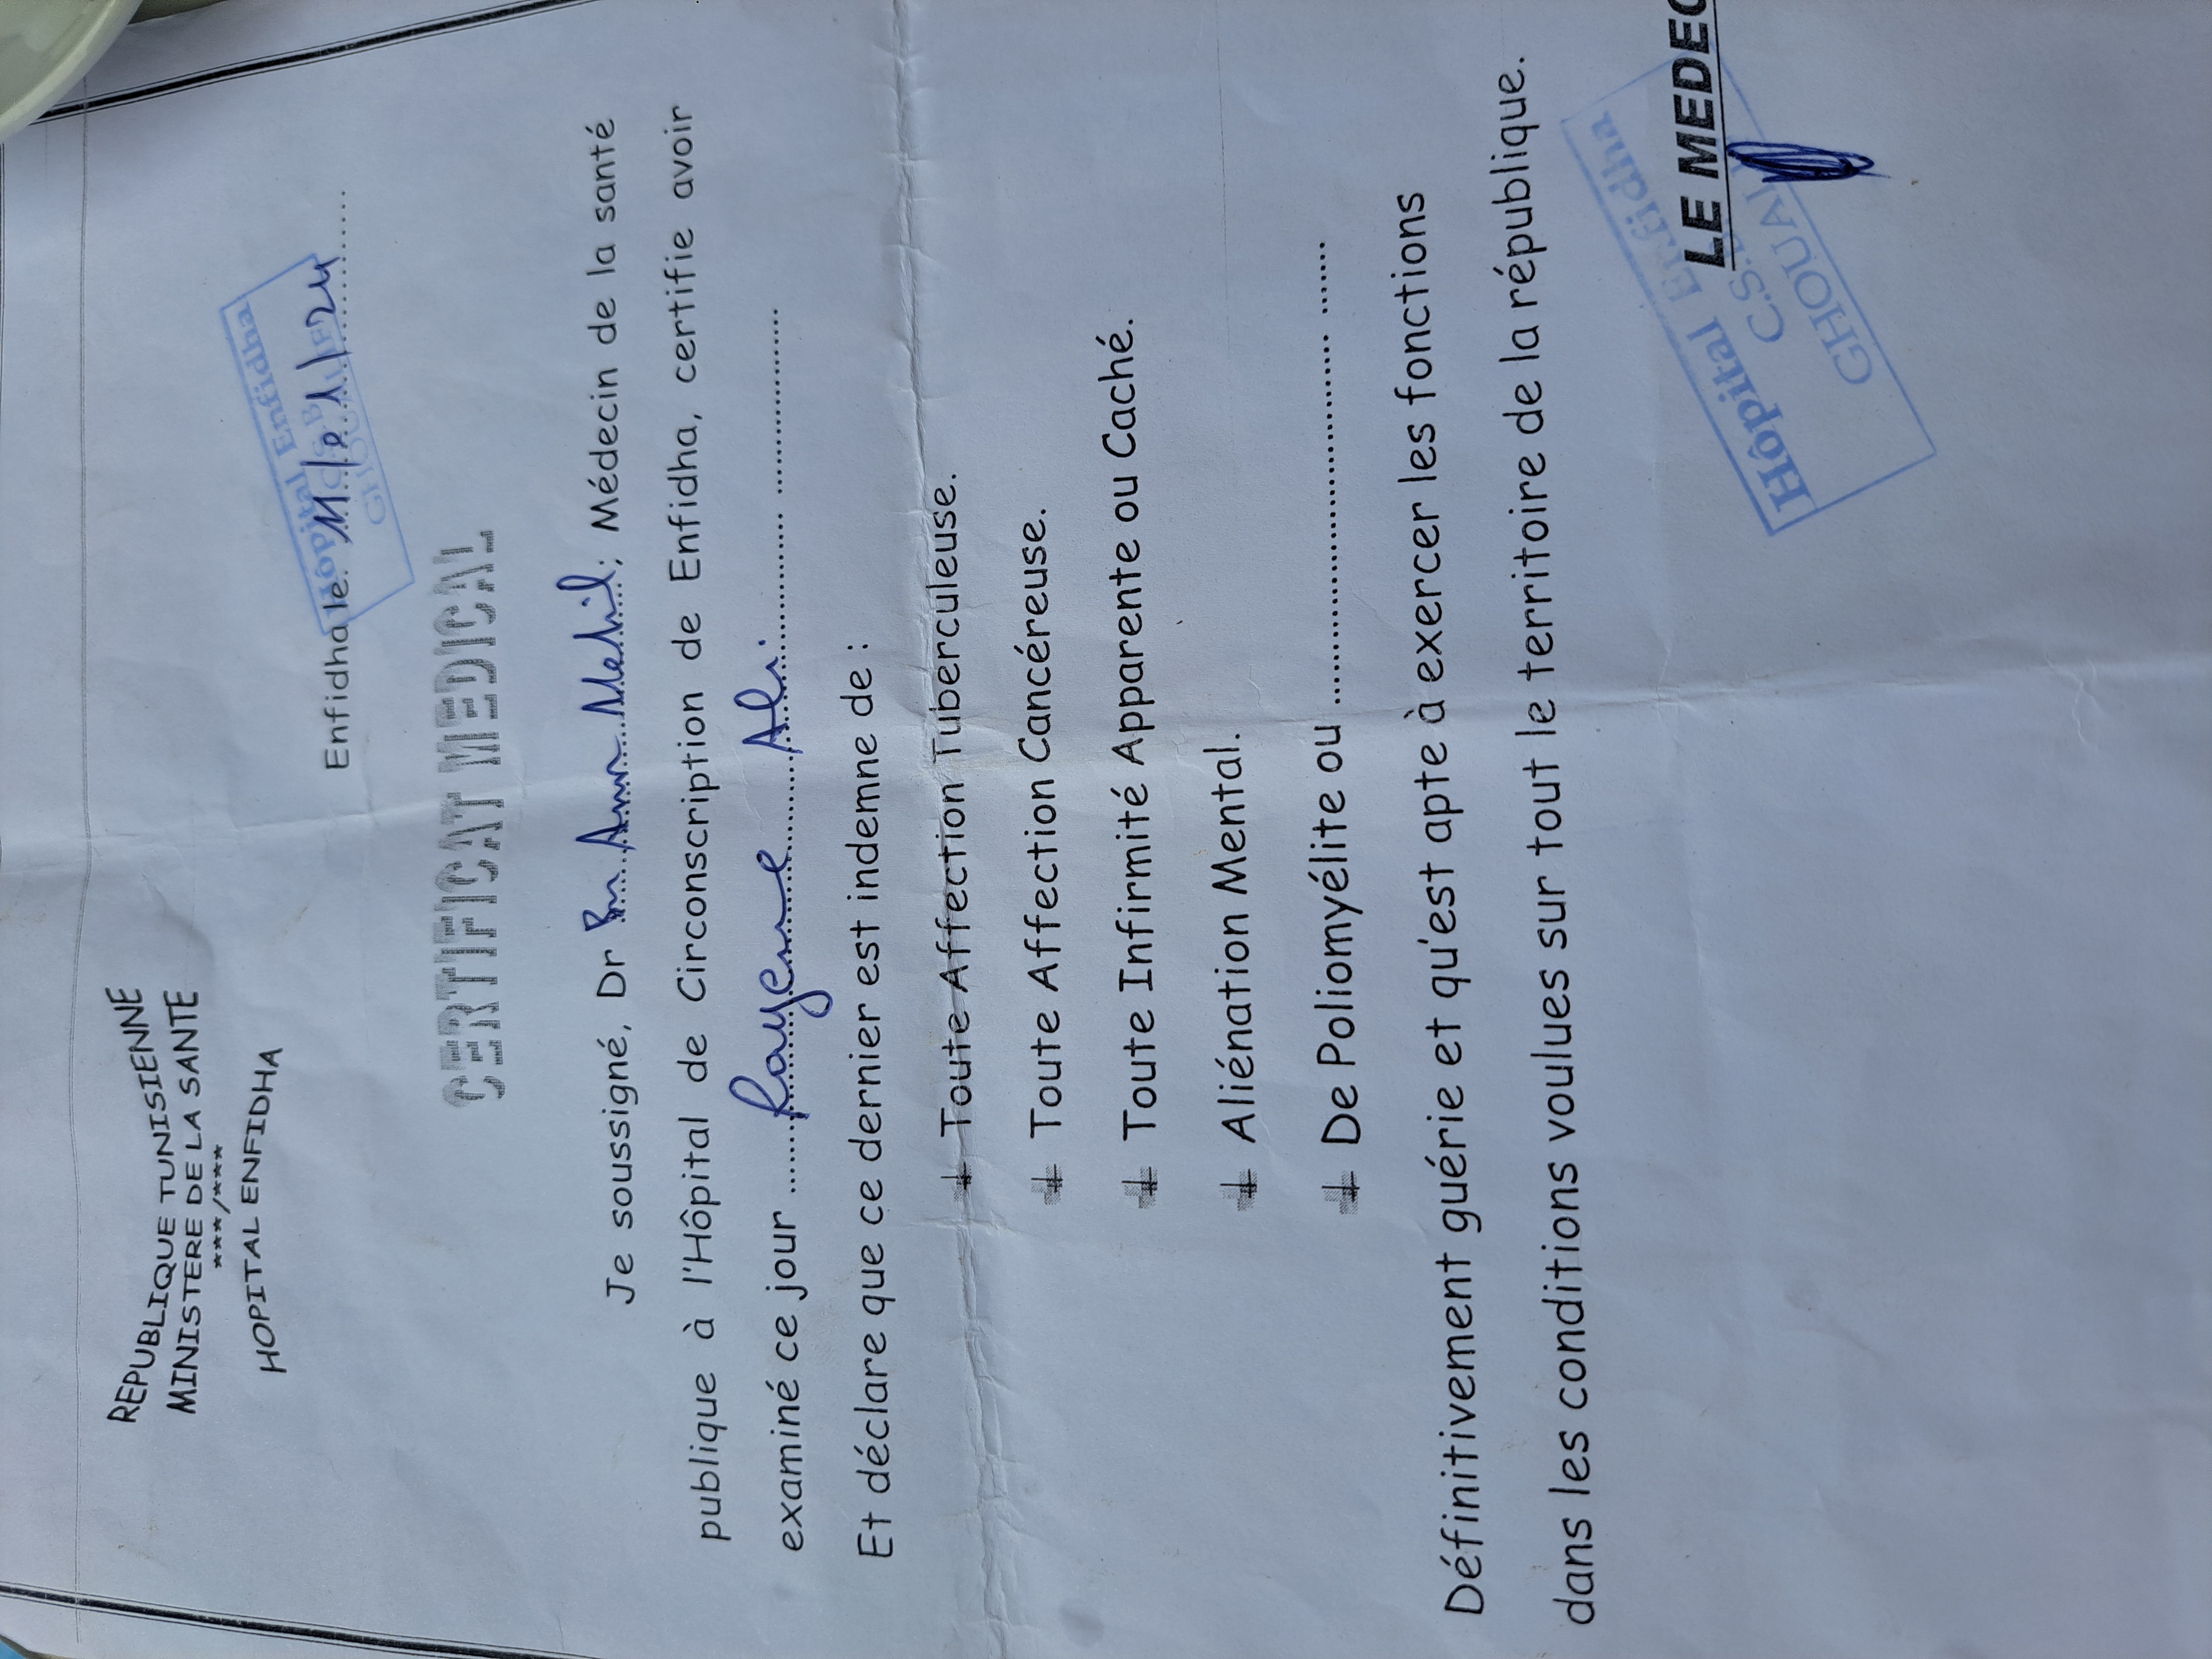 REPUBLIQUE TUNISIENNE
MINISTERE DE LA SANTE
***/***
HOPITAL ENFIDHA
Enfidha le
Hôpital Enfidha
CERTIFICAT MEDICAL
Je soussigné, Dr Ben Amm Mehil; Médecin de la santé
publique à l'Hôpital de Circonscription de Enfidha, certifie avoir
examiné ce jour Rayene Ali
Et déclare que ce dernier est indemne de :
Toute Affection Tuberculeuse.
Toute Affection Cancéreuse.
Toute Infirmité Apparente ou Caché.
Aliénation Mental.
De Poliomyélite ou ........................................ ......
Définitivement guérie et qu'est apte à exercer les fonctions
dans les conditions voulues sur tout le territoire de la république.
LE MEDEC
Hôpital Enfidha
C.S.
GHOUAL